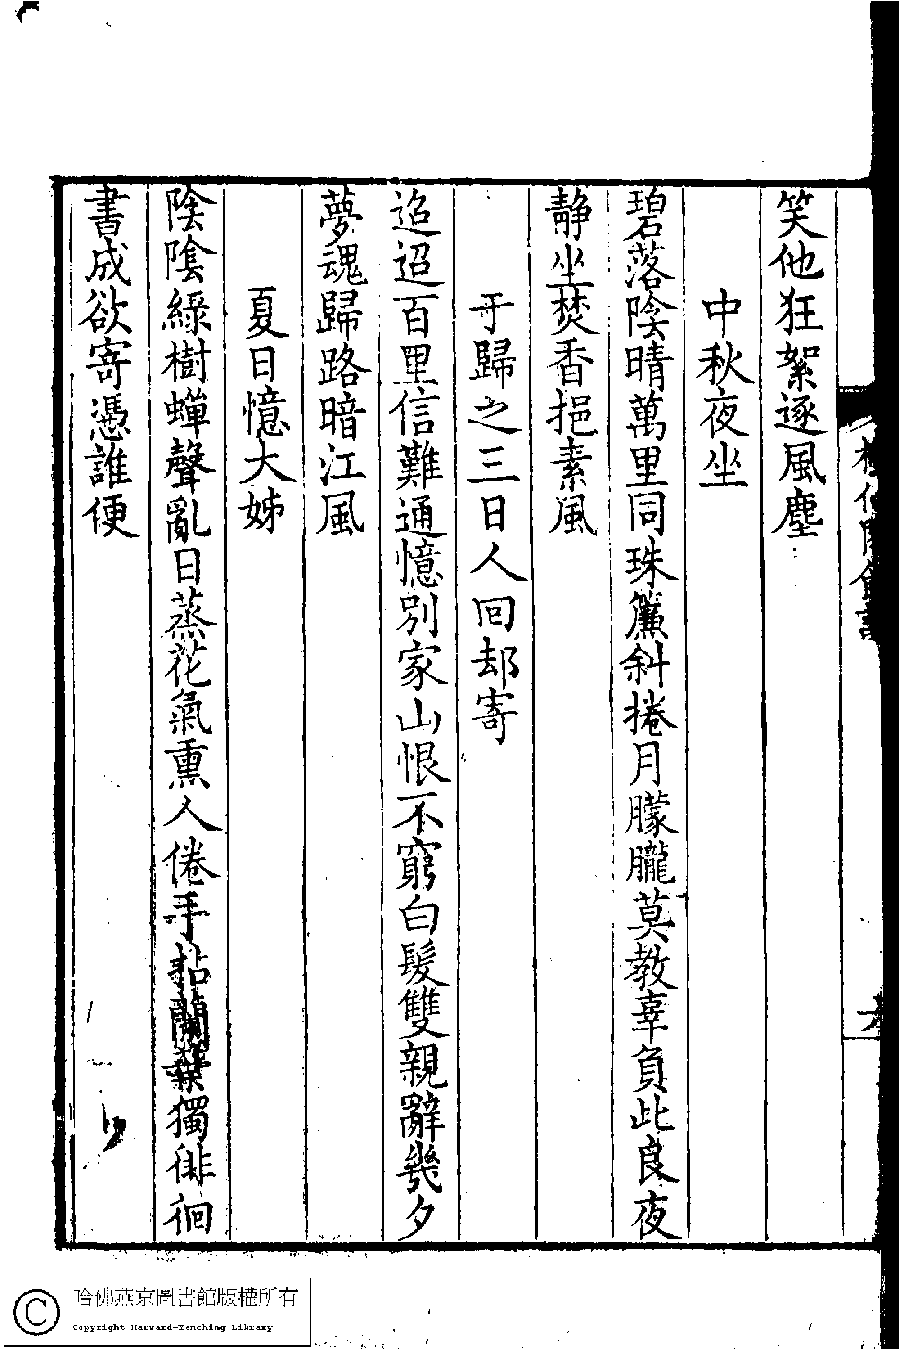 笑他狂絮逐風塵
中秋夜坐
碧落陰晴萬里同珠簾斜捲月朦朧莫教辜負此良夜
靜坐焚香挹素風
于歸之三日人回却寄
迢迢百里信難通憶別家山恨不窮白髮雙親辭幾夕
夢魂歸路暗江風
夏日憶大姊
陰陰綠樹蟬聲亂日蒸花氣熏人倦手拈蘭蕊獨徘徊
書成欲寄憑誰便
哈佛燕京圖書館版權所有
Copyright Harvard-Yenching Library